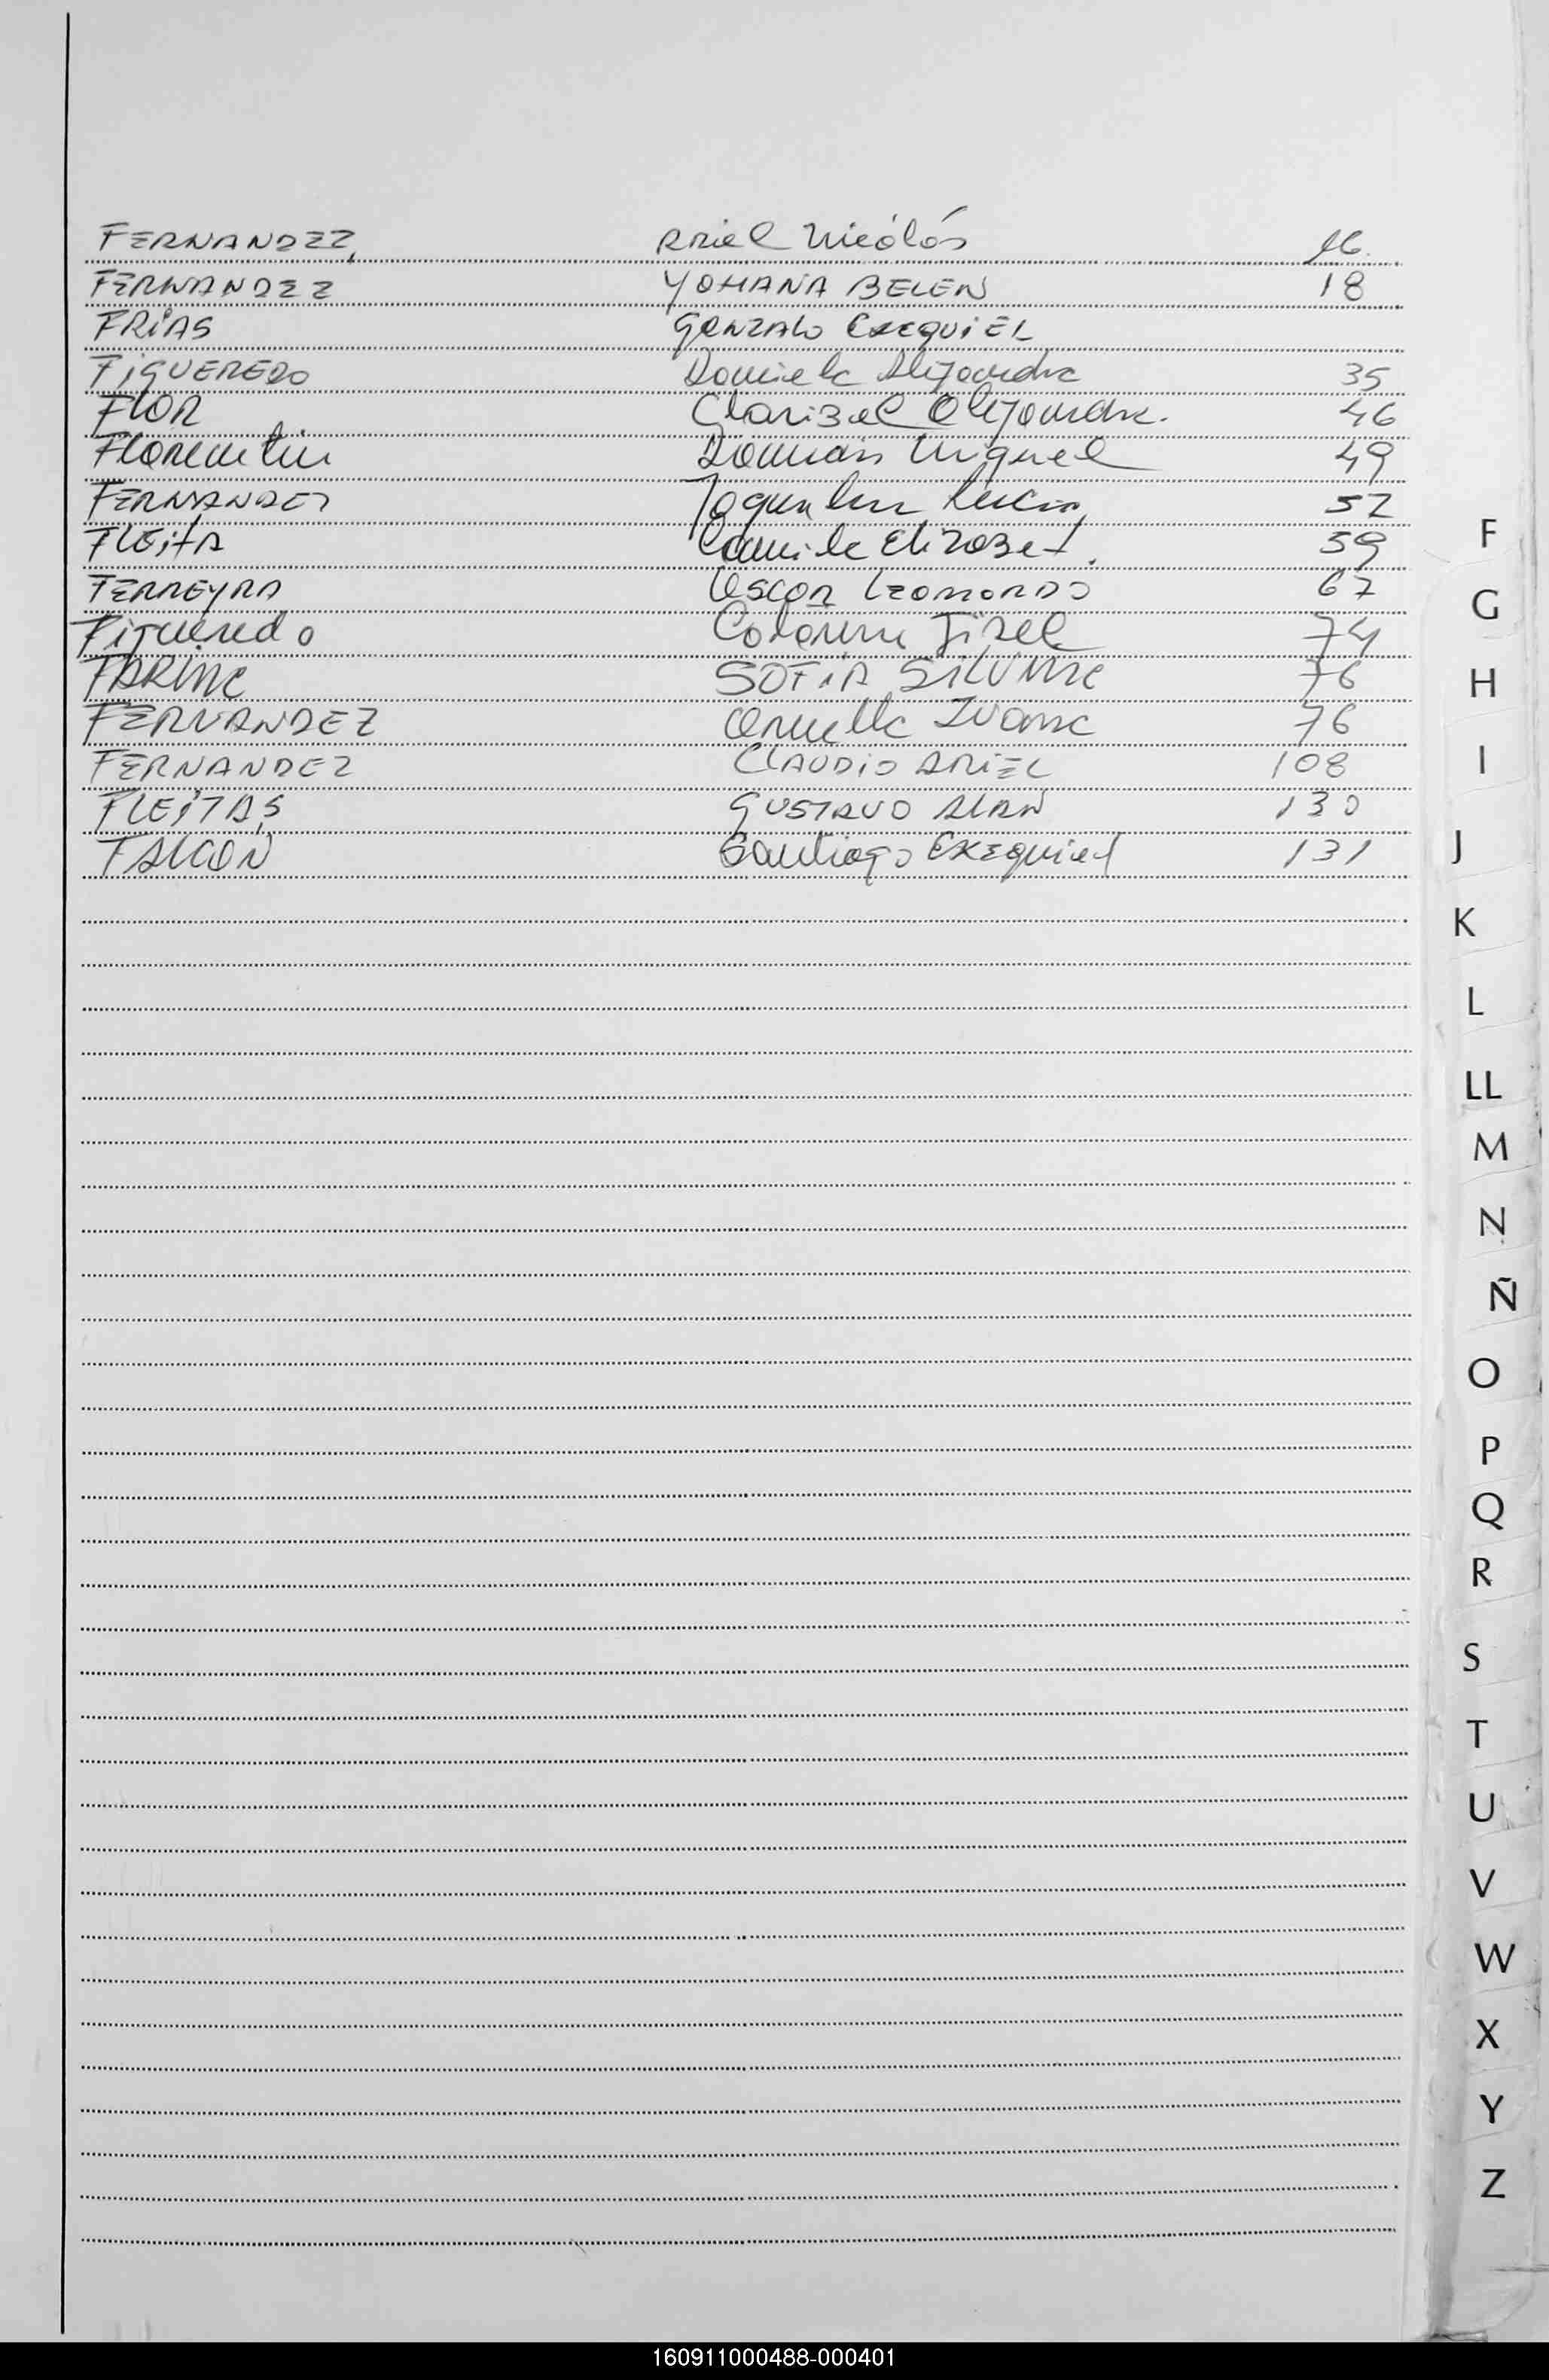 FERNANDEZ, Ariel Nicolás 16.
FERNANDEZ YOHANA BELEN 18
FRiAS GONZALO EXEQUiEL
FiGUEREDO Daniela Alejandra 35
FLOR Clarisel Alejandra. 46
Florentin Damián Miguel 49
FERNANDEZ Lucia 52
FLEitA Camila Elizabet. 59
FERREYRA Oscar Leonardo 67
Figueredo Gisel 74
FARINA SOFiA SiLVANA 76
FERNANDEZ Ornella Ivana 76
FERNANDEZ CLAUDiO ARiEL 108
FLEiTAS GUSTAVO ALAN 130
FALCON Santiago Exequiel 131
F
G
H
I
J
K
L
LL
M
N
Ñ
O
P
Q
R
S
T
U
V
W
X
Y
Z
160911000488-000401